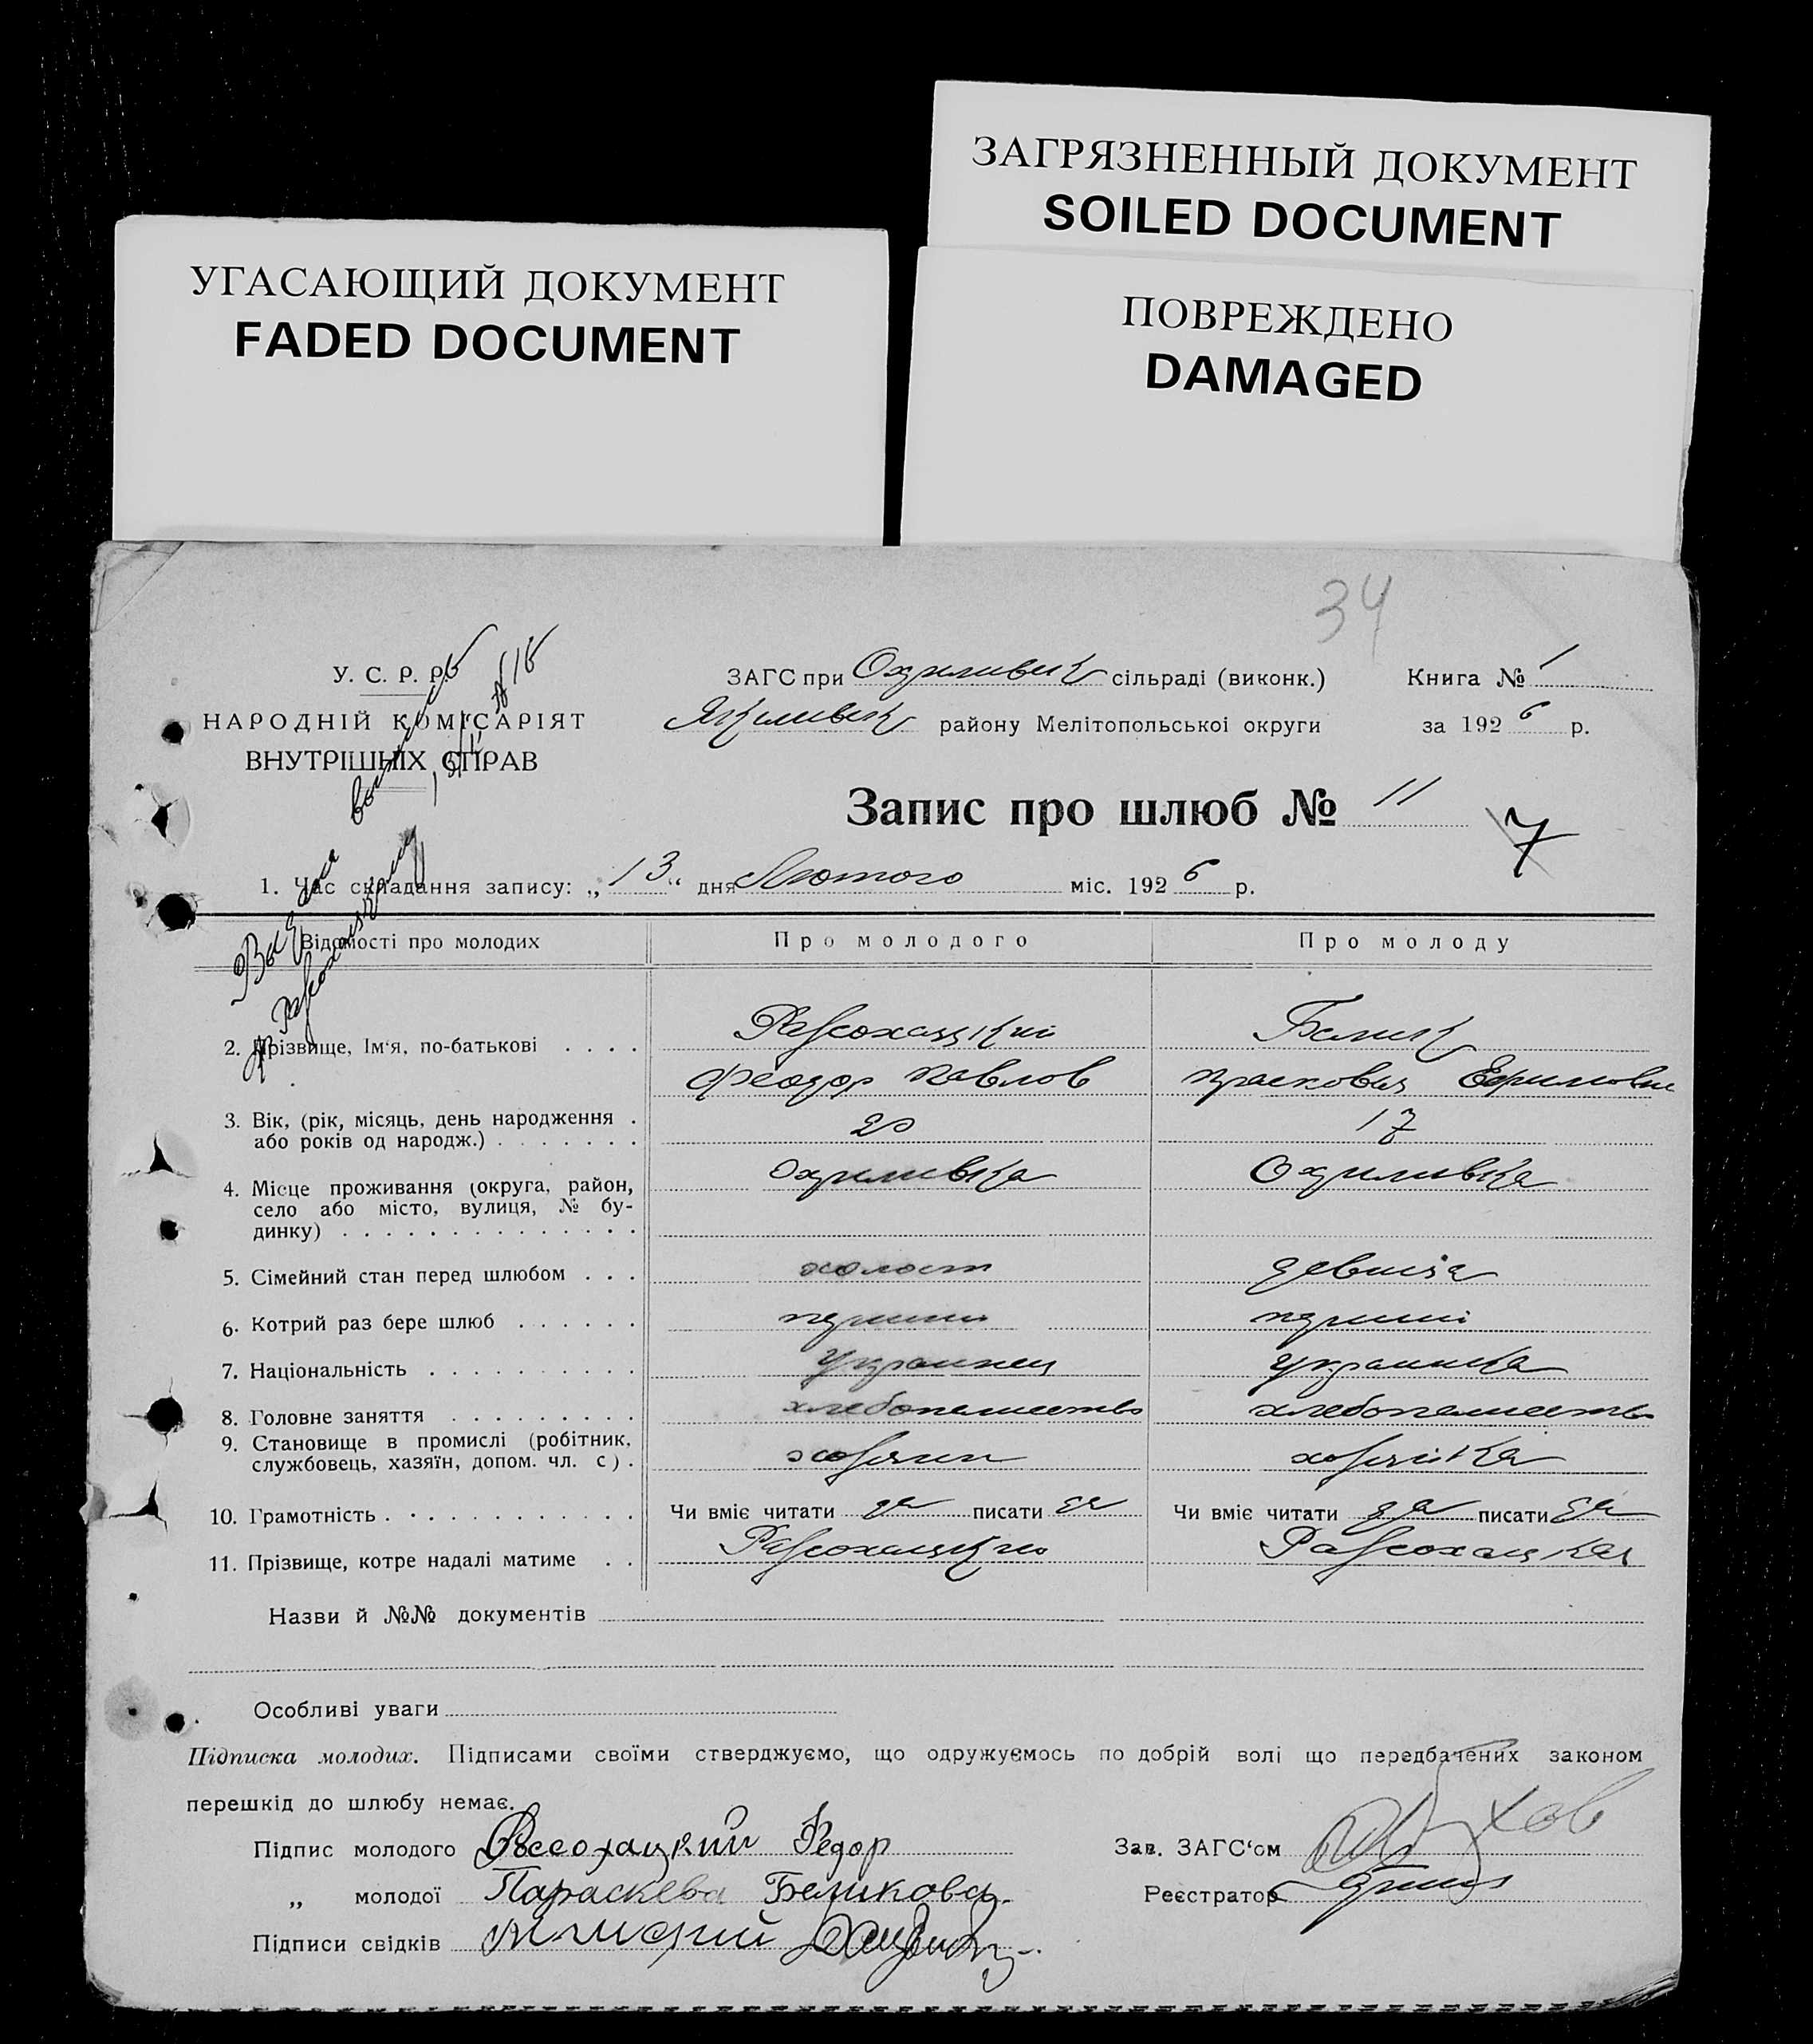 ЗАГРЯЗНЕННЫЙ ДОКУМЕНТ
SOILED DOCUMENT
УГАСАЮЩИЙ ДОКУМЕНТ
FADED DOCUMENT
ПОВРЕЖДЕНО
DAMAGED
34
У. С. Р. Р.
НАРОДНІЙ КОМІСАРІЯТ
ВНУТРІШНІХ СПРАВ
ЗАГС при Охримівск сільраді (виконк.) Книга № 1
Якимівск району Мелітопольської округи за 1926 р.
Запис про шлюб № 11
7
1. Час складання запису: „13“ дня Лютого міс. 1926 р.
Відомості про молодих Про молодого Про молоду
2. Прізвище, Ім'я, по-батькові . . . . Разсохацкий Белик
Феодор Павлов Прасковия Ефимовна
3. Вік, (рік, місяць, день народження . 20 17
або років од народж.) . . . . . . .
4. Місце проживання (округа, район, Охримівка Охримівка
село або місто, вулиця, № бу-
динку) . . . . . . . . . . . . . .
5. Сімейний стан перед шлюбом . . . холост девиця
6. Котрий раз бере шлюб . . . . . . перший перший
7. Національність . . . . . . . . . . Украинец Украинка
8. Головне заняття . . . . . . . . . хлебопашество хлебопашество
9. Становище в промислі (робітник, хозяин хозяйка
службовець, хазяїн, допом. чл. с) .
10. Грамотність . . . . . . . . . . . Чи вміє читати да писати да Чи вміє читати да писати да
11. Прізвище, котре надалі матиме . . Разсохацкий Разсохацкая
Назви й №№ документів
Особливі уваги
Підписка молодих. Підписами своїми стверджуємо, що одружуємось по добрій волі що передбачених законом
перешкід до шлюбу немає.
Підпис молодого Россохацкий Федор Зав. ЗАГС'ом
„ молодої Параскева Беликова Реєстратор
Підписи свідків